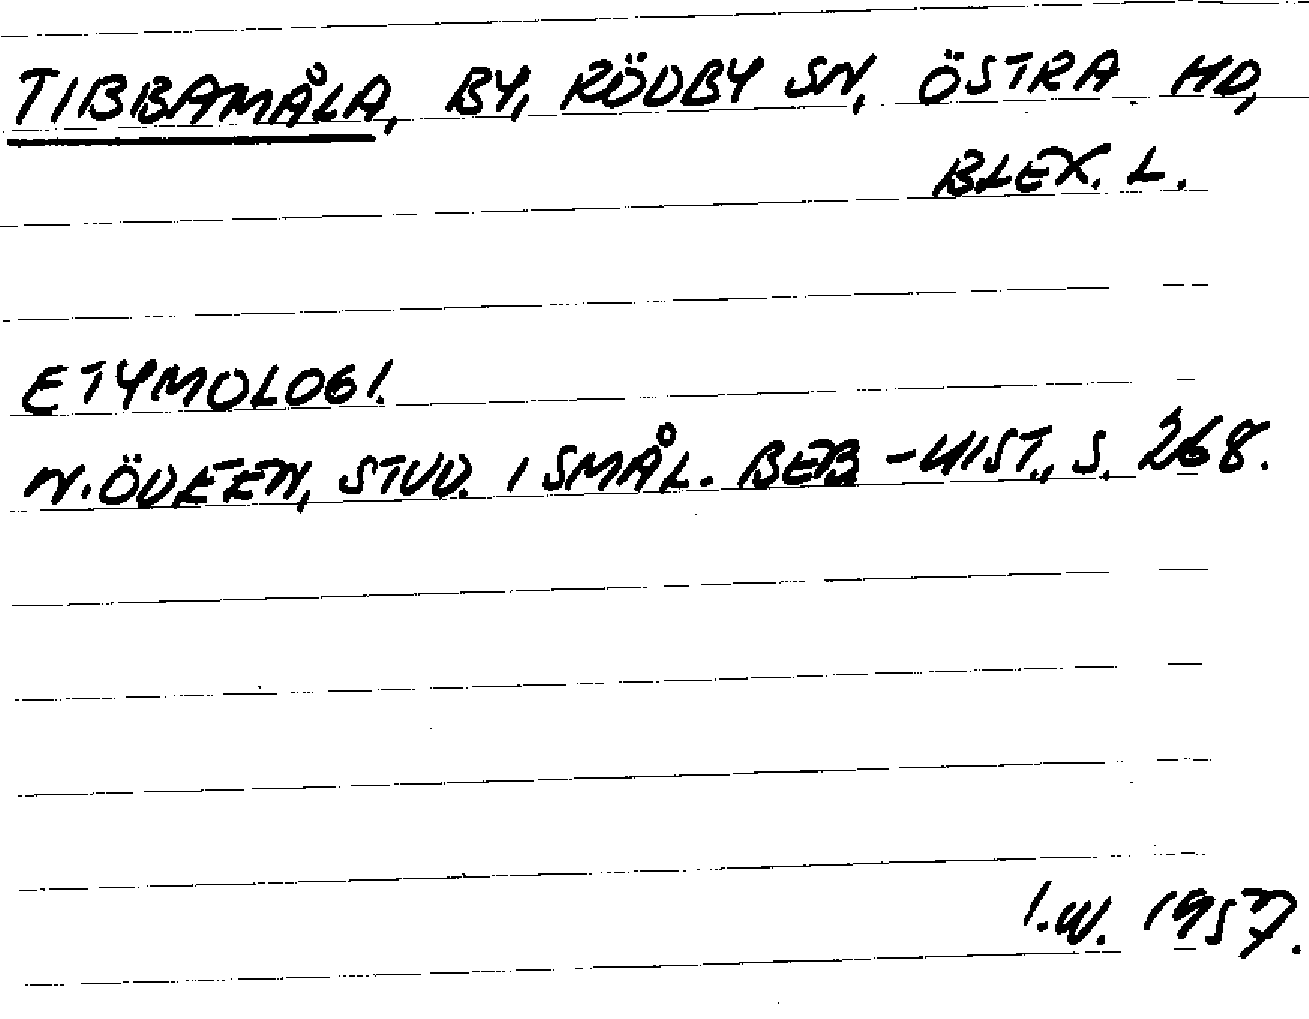 TIBBAMÅLA, BY, RÖDBY SN, ÖSTRA HD,
BLEK. L.
ETYMOLOGI.
N. ÖDEEN, STUD. I SMÅL. BEB.-HIST., S. 268.
I.W. 1957.